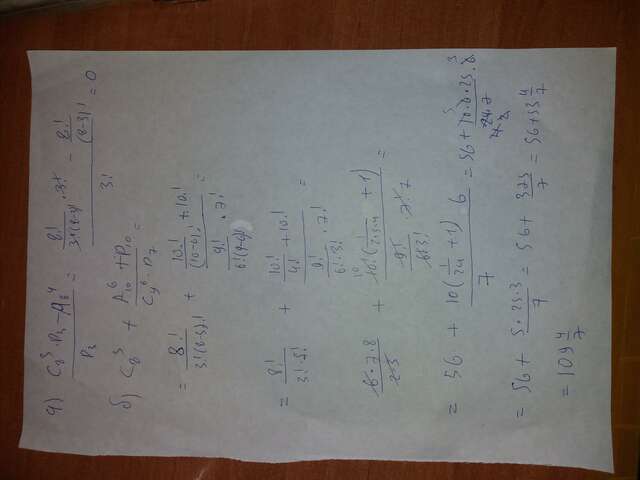 а) (C₈³ · P₃ − A₈⁴) / P₃ = (8! / (3!(8-3)!) · 3! − 8! / (8-3)!) / 3! = 0
б) C₈³ + (A₁₀⁶ + P₁₀) / (C₉⁶ · P₇) =
= 8! / (3!(8-3)!) + (10! / (10-6)! + 10!) / (9! / (6!(9-6)!) · 7!) =
= 8! / (3! · 5!) + (10! / 4! + 10!) / (9! / (6! · 3!) · 7!) =
6 · 7 · 8 / (2 · 3) + 10! (1 / (2·3·4) + 1) / (9! / (6! 3!) · 7! · 7) =
= 56 + 10 (1/24 + 1) 6 / 7 = 56 + 10 · 6 · 25 / (24 · 7)
= 56 + 5 · 25 · 3 / 7 = 56 + 375 / 7 = 56 + 53 4/7
= 109 4/7